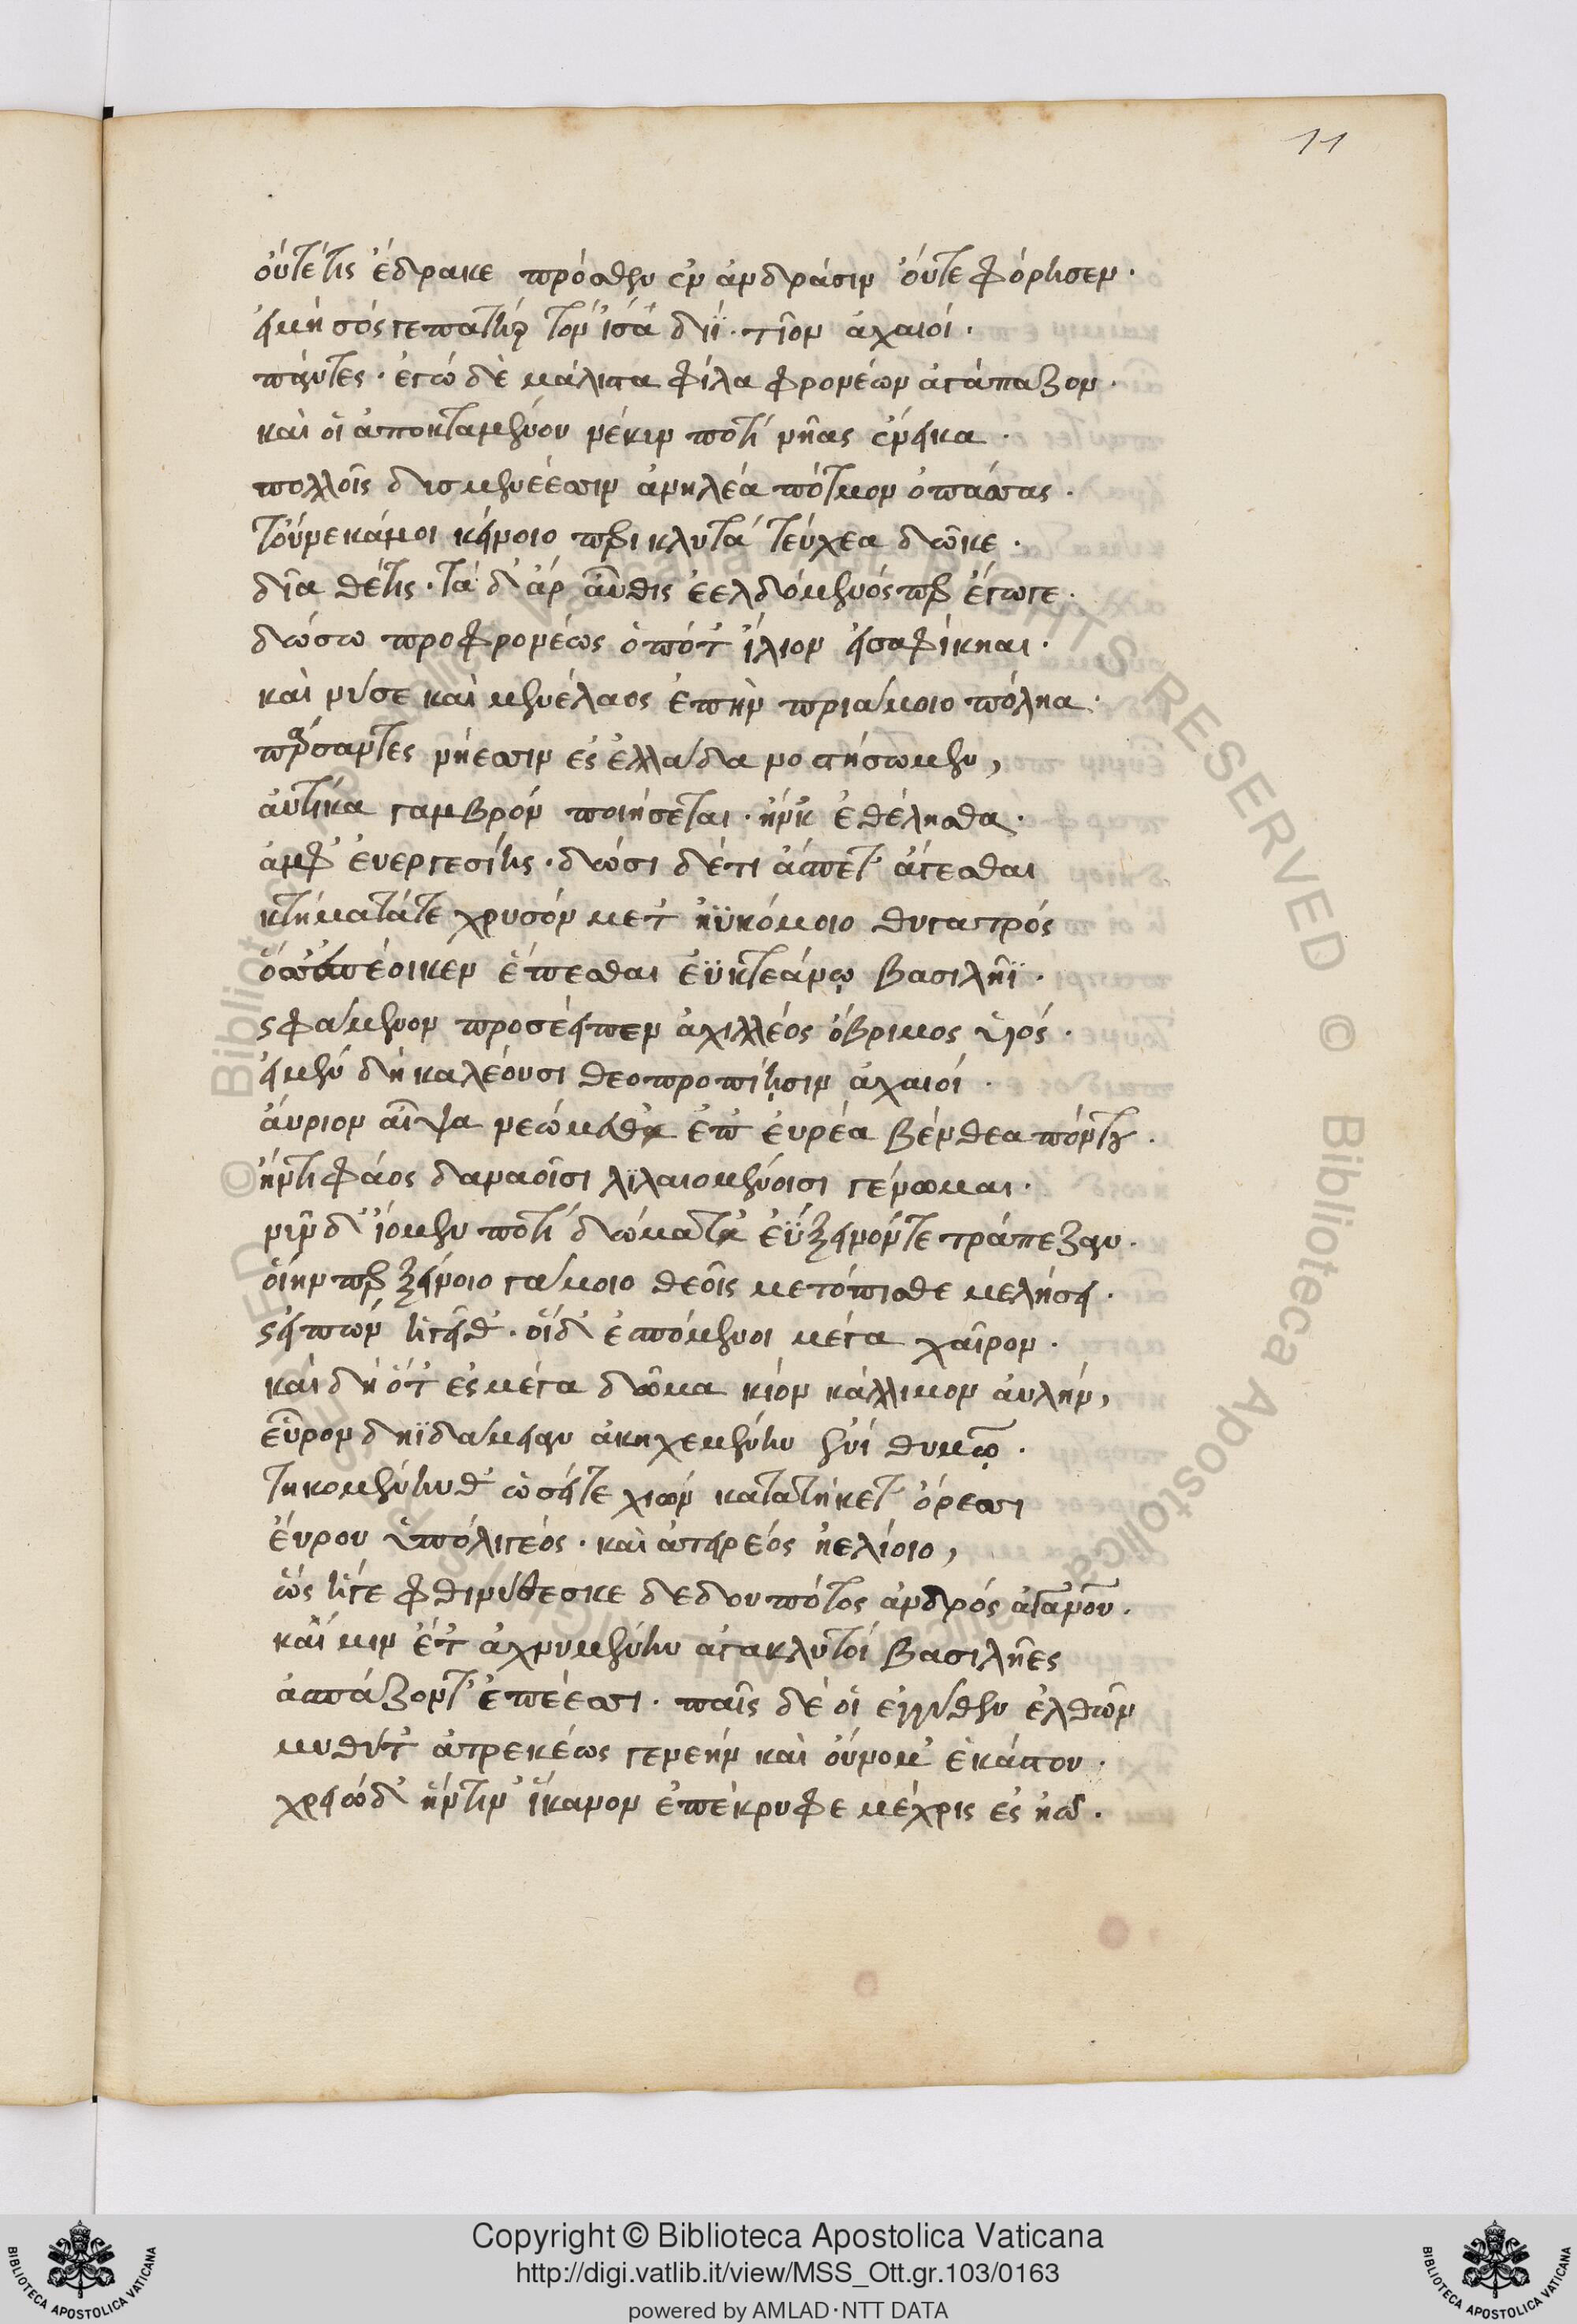 11
οὔτέ τις ἔδρακε πρόσθεν ἐν ἀνδράσιν οὔτε φόρησεν.
εἰ μὴ σός γε πατὴρ τὸν ἶσα διῒ. τῖον ἀχαιοί.
πάντες. ἐγὼ δὲ μάλιστα φίλα φρονέων ἀγάπαζον.
καὶ οἱ ἀποκταμένου νέκυν ποτὶ νῆας ἔνεικα.
πολλοῖς δυσμενέεσσιν ἀνηλέα πότμον ὀπάσσας.
τοὔνεκά μοι κείνοιο περικλυτὰ τεύχεα δῶκε.
δῖα θέτις. τὰ δ' ἂρ αὖθις ἐελδόμενός περ ἔγωγε.
δώσω προφρονέως ὁπότ' ἴλιον εἰσαφίκηαι.
καὶ νύ σε καὶ μενέλαος ἐπὴν πριάμοιο πόληα.
πέρσαντες νήεσσιν ἐς ἑλλάδα νοστήσωμεν,
αὐτίκα γαμβρὸν ποιήσεται. ἤν κ' ἐθέλησθα.
ἀμφ' εὐεργεσίης. δώσι δέ τι ἄσπετ' ἄγεσθαι
κτήματά τε χρυσόν μετ' ἠϋκόμοιο θυγατρός
ὅσσ' ἀπέοικεν ἕπεσθαι ἐϋκτεάνῳ βασιλῆϊ.
ὣς φάμενον προσέειπεν ἀχιλλέος ὄβριμος υἱός.
εἰ μὲν δὴ καλέουσι θεοπροπίῃσιν ἀχαιοί.
αὔριον αἶψα νεώμεθα ἐπ' εὐρέα βένθεα πόντου.
ἤν τι φάος δαναοῖσι λιλαιομένοισι γένωμαι.
νῦν δ' ἴομεν ποτὶ δώματα ἐϋξεινόν τε τράπεζαν.
οἵην περ ξείνοιο γάμοιο θεοῖς μετόπισθε μελήσει.
ὣς εἰπὼν ἡγεῖθ'. οἱ δ' ἑσπόμενοι μέγα χαῖρον.
καὶ δὴ ὅτ' ἐς μέγα δῶμα κίον κάλλιμον αὐλήν,
εὗρον δηϊδάμειαν ἀκηχεμένην ἐνὶ θυμῷ.
τηκομένην θ' ὡσεί τε χιὼν κατατήκετ' ὄρεσσι
εὔρου ὑπὸ λιγέος. καὶ ἀτειρέος ἠελίοιο,
ὣς ἥγε φθινύθεσκε δεδουπότος ἀνδρός ἀγανοῦ.
καί μιν ἔτ' ἀχνυμένην ἀγακλυτοὶ βασιλῆες
ἀσπάζοντ' ἐπέεσσι. παῖς δέ οἱ ἐγγύθεν ἐλθὼν
μυθεῖτ' ἀτρεκέως γενεὴν καὶ οὔνομ' ἑκάστου.
χρειώ δ' ἥντιν' ἵκανον ἐπέκρυφε μέχρις ἐς ἠῶ.
Copyright © Biblioteca Apostolica Vaticana
http://digi.vatlib.it/view/MSS_Ott.gr.103/0163
powered by AMLAD·NTT DATA